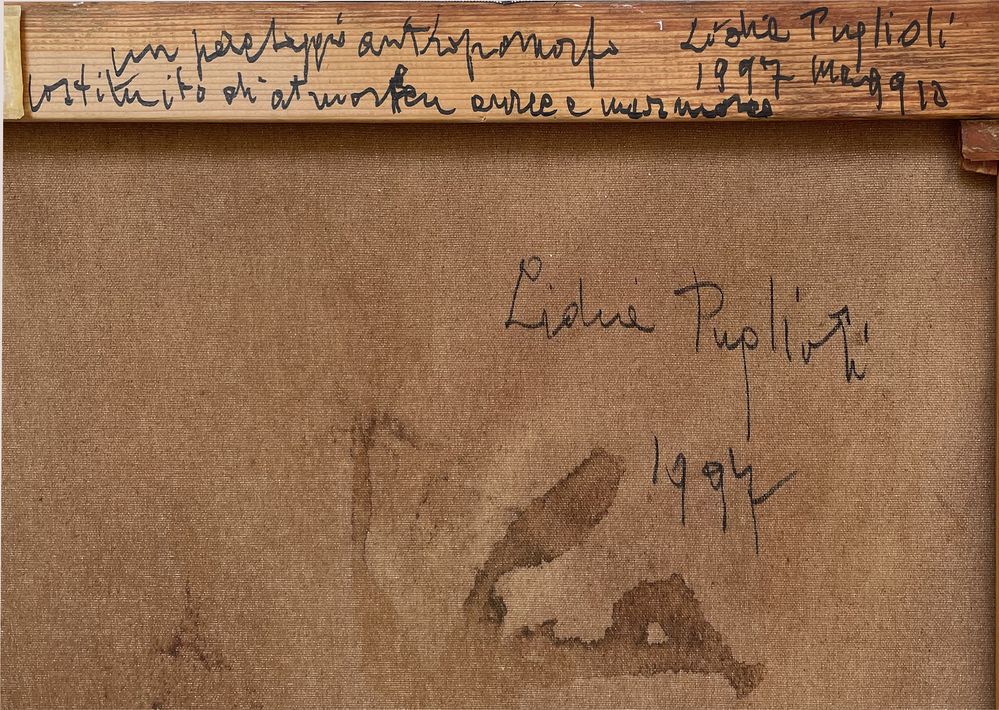 un paesaggio antropomorfo
costituito di atmosfera auree e marmoree
Lidia Puglioli
1997 Maggio
Lidia Puglioli
1997